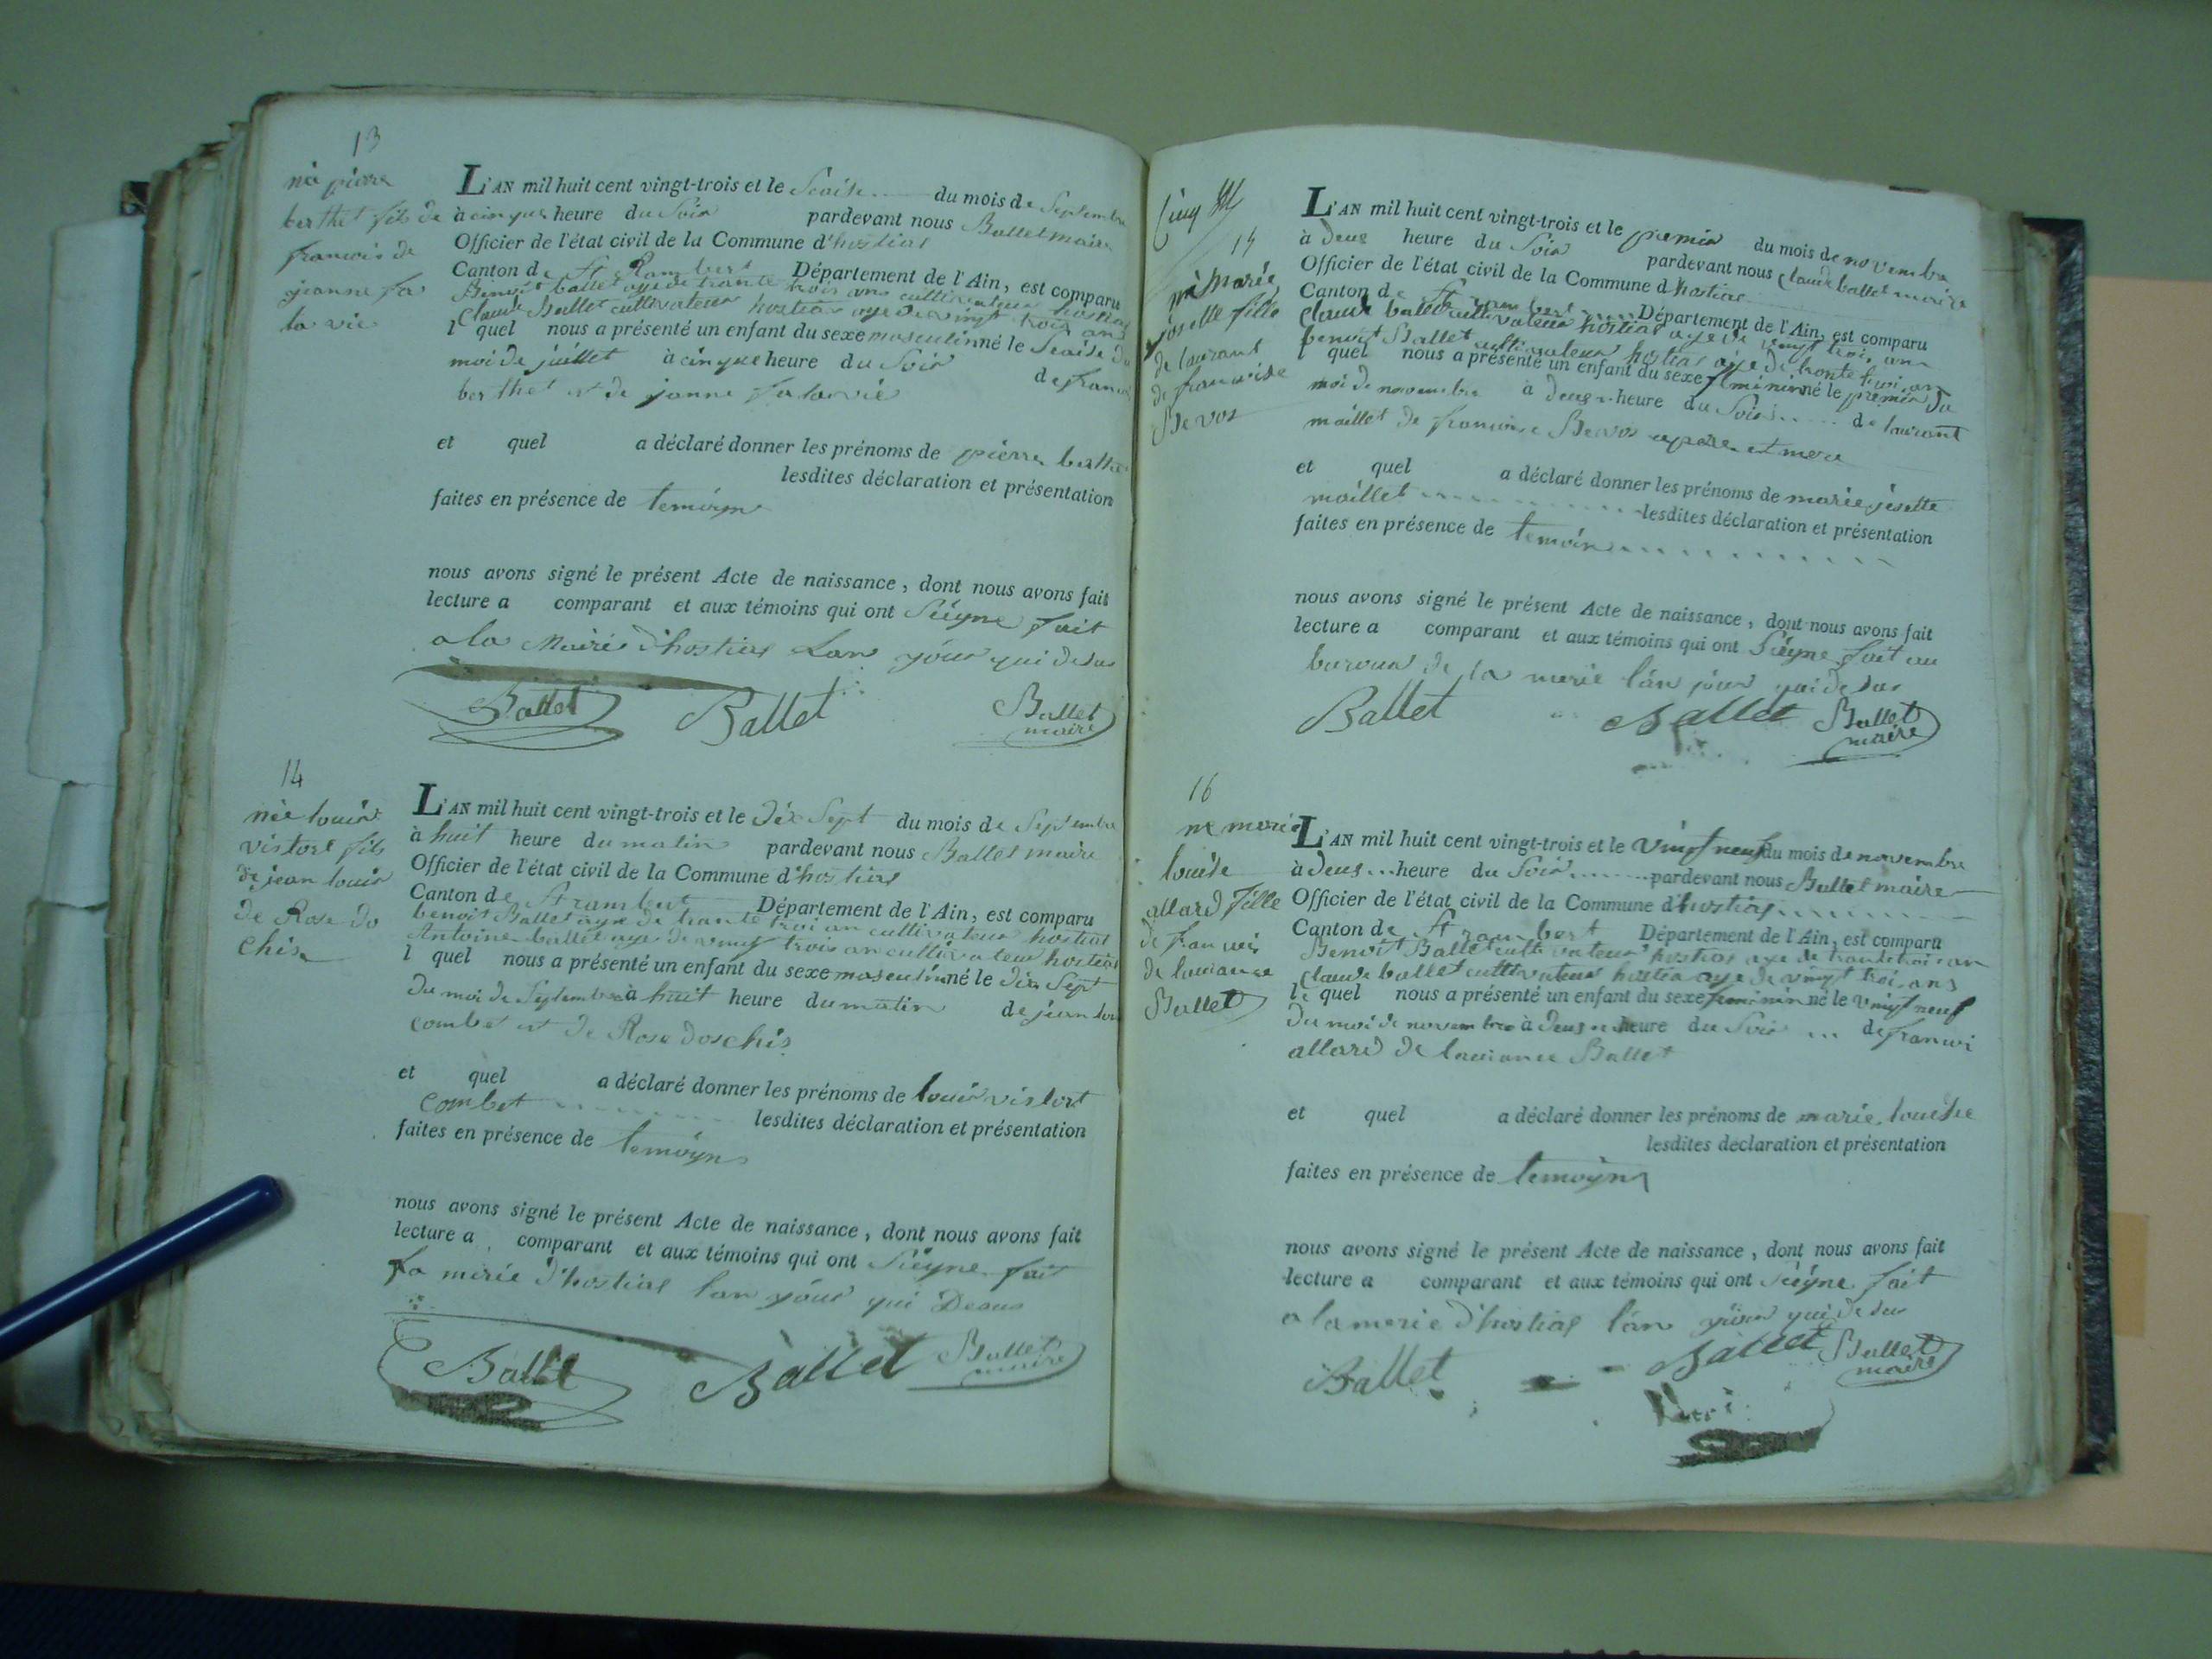 13
né pierre
berthet fils de
francois de
jeanne fa
la vie
L'AN mil huit cent vingt-trois et le Séaise du mois de Septembre
à cinque heure du Soir pardevant nous Ballet maire
Officier de l'état civil de la Commune d'hostias
Canton de St Rambert Département de l'Ain, est comparu
Benoit ballet aye de trante trois ans cultivateur hostias
Claude Ballet cultivateur hostias aye de vingt trois ans
l quel nous a présenté un enfant du sexe masculin né le Seaise du
moi de juillet à cinque heure du Soir de francois
berthet et de janne falavie
et quel a déclaré donner les prénoms de pierre berthet
lesdites déclaration et présentation
faites en présence de temoign
nous avons signé le présent Acte de naissance, dont nous avons fait
lecture a comparant et aux témoins qui ont Siéyne fait
a la Mairie d'hostias Lan jóur qui desus
Ballet Ballet Ballet
maire
14
née louis
victore fils
de jean louis
de Rose do
chis
L'AN mil huit cent vingt-trois et le dix Sept du mois de Septembre
à huit heure du matin pardevant nous Ballet maire
Officier de l'état civil de la Commune d'hostias
Canton de St rambert Département de l'Ain, est comparu
benoit Ballet aye de trante troi an cultivateur hostias
Antoine ballet aye de vingt trois an cultivateur hostias
l quel nous a présenté un enfant du sexe masculin né le dix Sept
du moi de Septembre à huit heure du matin de jean lou
combet et de Rose doschis
et quel a déclaré donner les prénoms de louis victort
combet lesdites déclaration et présentation
faites en présence de temoyns
nous avons signé le présent Acte de naissance, dont nous avons fait
lecture a comparant et aux témoins qui ont Siéyne fait
a merie d'hostias lan jóur qui Desus
Ballet Ballet Ballet
maire
né Marie
josette fille
de laurant
de francoise
Bevos
L'AN mil huit cent vingt-trois et le premier du mois de novembre
à Deus heure du Soir pardevant nous claude ballet maire
Officier de l'état civil de la Commune d hostias
Canton de St rambert Département de l'Ain, est comparu
claude ballet cultivateur hostias aye de vingt troi an
benoit Ballet cultivateur hostias aye de trante troi an
l quel nous a présenté un enfant du sexe féminin né le premier du
moi de novembre à deus heure du Soir de laurant
maillet de francoise Bevos pere et mere
et quel a déclaré donner les prénoms de marie josette
maillet lesdites déclaration et présentation
faites en présence de temoin
nous avons signé le présent Acte de naissance, dont nous avons fait
lecture a comparant et aux témoins qui ont Siéyne fait au
buroua de la merie lán jóur qui desus
Ballet Ballet Ballet
maire
16
ne marie
louise
allard fille
de francois
de lauiance
Ballet
L'AN mil huit cent vingt-trois et le vingt neuf du mois de novembre
à deus heure du Soir pardevant nous Ballet maire
Officier de l'état civil de la Commune d'hostias
Canton de St rambert Département de l'Ain, est comparu
Benoit Ballet cultivateur hostias aye de trante troi an
claude ballet cultivateur hostia aye de vingt troi ans
le quel nous a présenté un enfant du sexe feminin né le vingt neuf
du moi de novembre à deus heure du Soir de francoi
allard de lauiance Ballet
et quel a déclaré donner les prénoms de marie louise
lesdites déclaration et présentation
faites en présence de temoyn
nous avons signé le présent Acte de naissance, dont nous avons fait
lecture a comparant et aux témoins qui ont Siéyne fait
a la merie d'hostias lán jóur qui desus
Ballet Ballet Ballet
maire